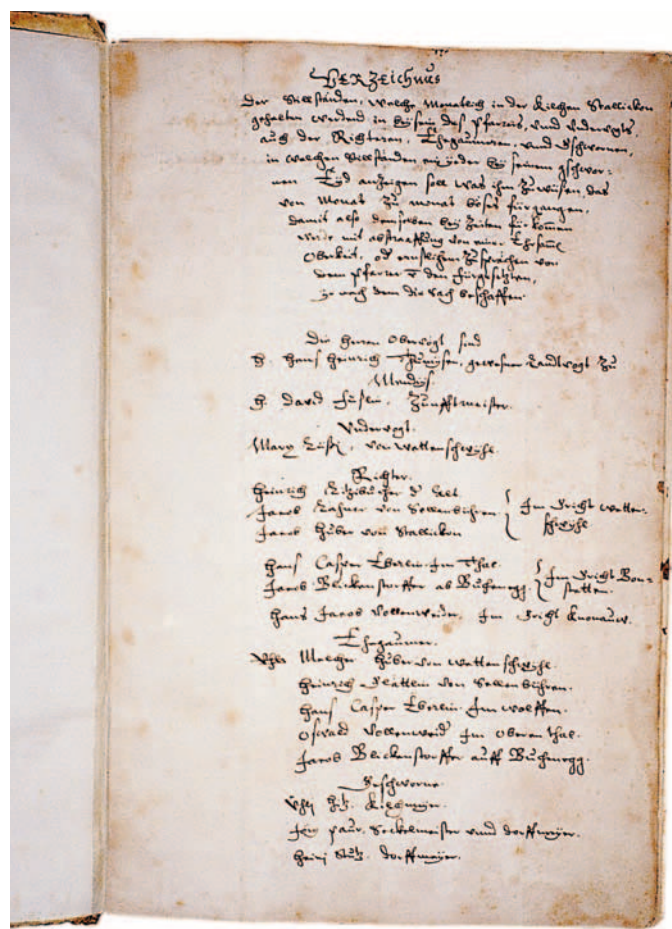 VERZeichnus
der Stillständen, welche Monatlich in der Kilchen Stallickon
gehalten werdend in bysein des Pfarrers, vnd Vndervogts,
auch der Richteren, Ehegaumeren, vnd Gschwornen,
in welchen Stillständen ein yeder by seinem gschwor-
nen Eyd anzeigen soll was ihm zu wüsen, das
von Monat zu monat böses fürgangen,
damit also demselben by Zeiten fürkommen
werde mit abstraaffung von einer Ehrsam̃
Oberkeit, od ernstlichem Zusprächen von
dem Pfarrer den fürgesetzten,
je nach dem die sach beschaffen.
Die Herren Obervögt sind
H. Hans Heinrich gewesner Landtvogt zu
H. David Zunfftmeister.
Vndervogt.
Marx von Wattenschwyhl.
Richter.
Heinrich der Elt.
Jacob von Sellenbühren
Jacob Huber von Stallickon
Im Gricht Watten-
schwyhl
Hans Casper Eberlin Im Thal.
Jacob Blickenstorffer ab Buchenegg.
Im Gricht Bon-
stetten.
Hans Jacob Vollenweider, Im Gricht Knonauw.
Ehegaumer.
Melcher Huber von Wattenschwyhl.
Heinrich Glättlin von Sellenbühren.
Hans Casper Eberlin Im Wolffen.
Oswald Vollenweid Im Oberen thal.
Jacob Blickenstorffer auff Buchenegg.
Geschworne.
Kilchmeyer.
Seckelmeister vnnd dorffmeyer.
Heinj Stutz. dorffmeyer.